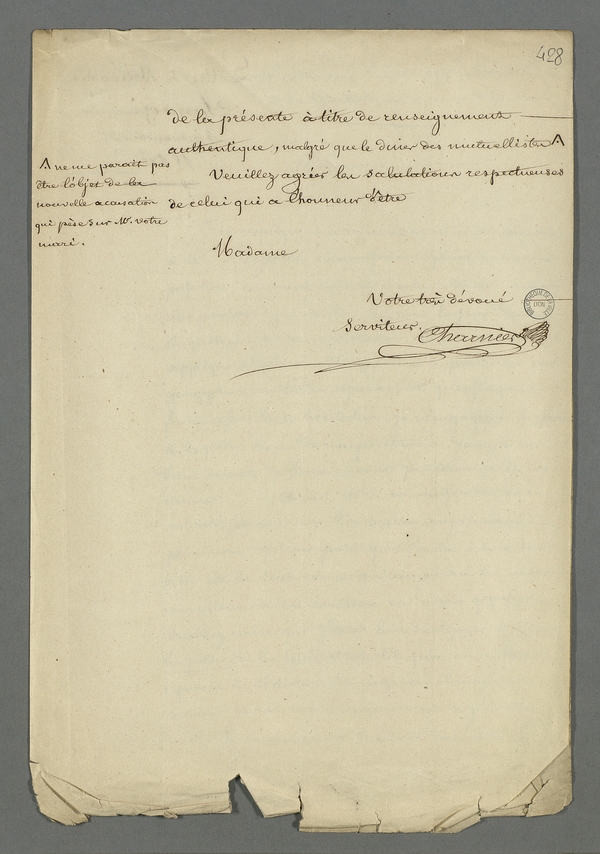 428
de la présente à titre de renseignement
authentique, malgré que le diner des mutuellistes Λ
Λ ne me parait pas
être l'objet de la
nouvelle accusation
qui pèse sur Mr. votre
mari.
Veuillez agréer les salutations respectueuses
de celui qui a l'honneur d'être
Madame
Votre très dévoué
Serviteur.
Charnier
LYON